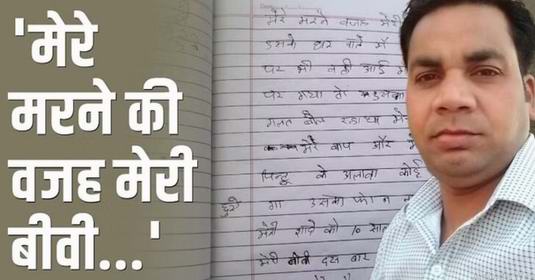 'मेरे
मरने की
वजह मेरी
बीवी...'
मेरे मरने वजह मेरी
इसके घर वाले में
पर भी नही आई म
पर गया तो
गलत बोल रहा था मे
मेरे बाप और मे
पिन्टू के अलावा कोई
छुऐ गा उसका फोन न
मेरी शादी को 10 साल
मेरी बीवी दस बार